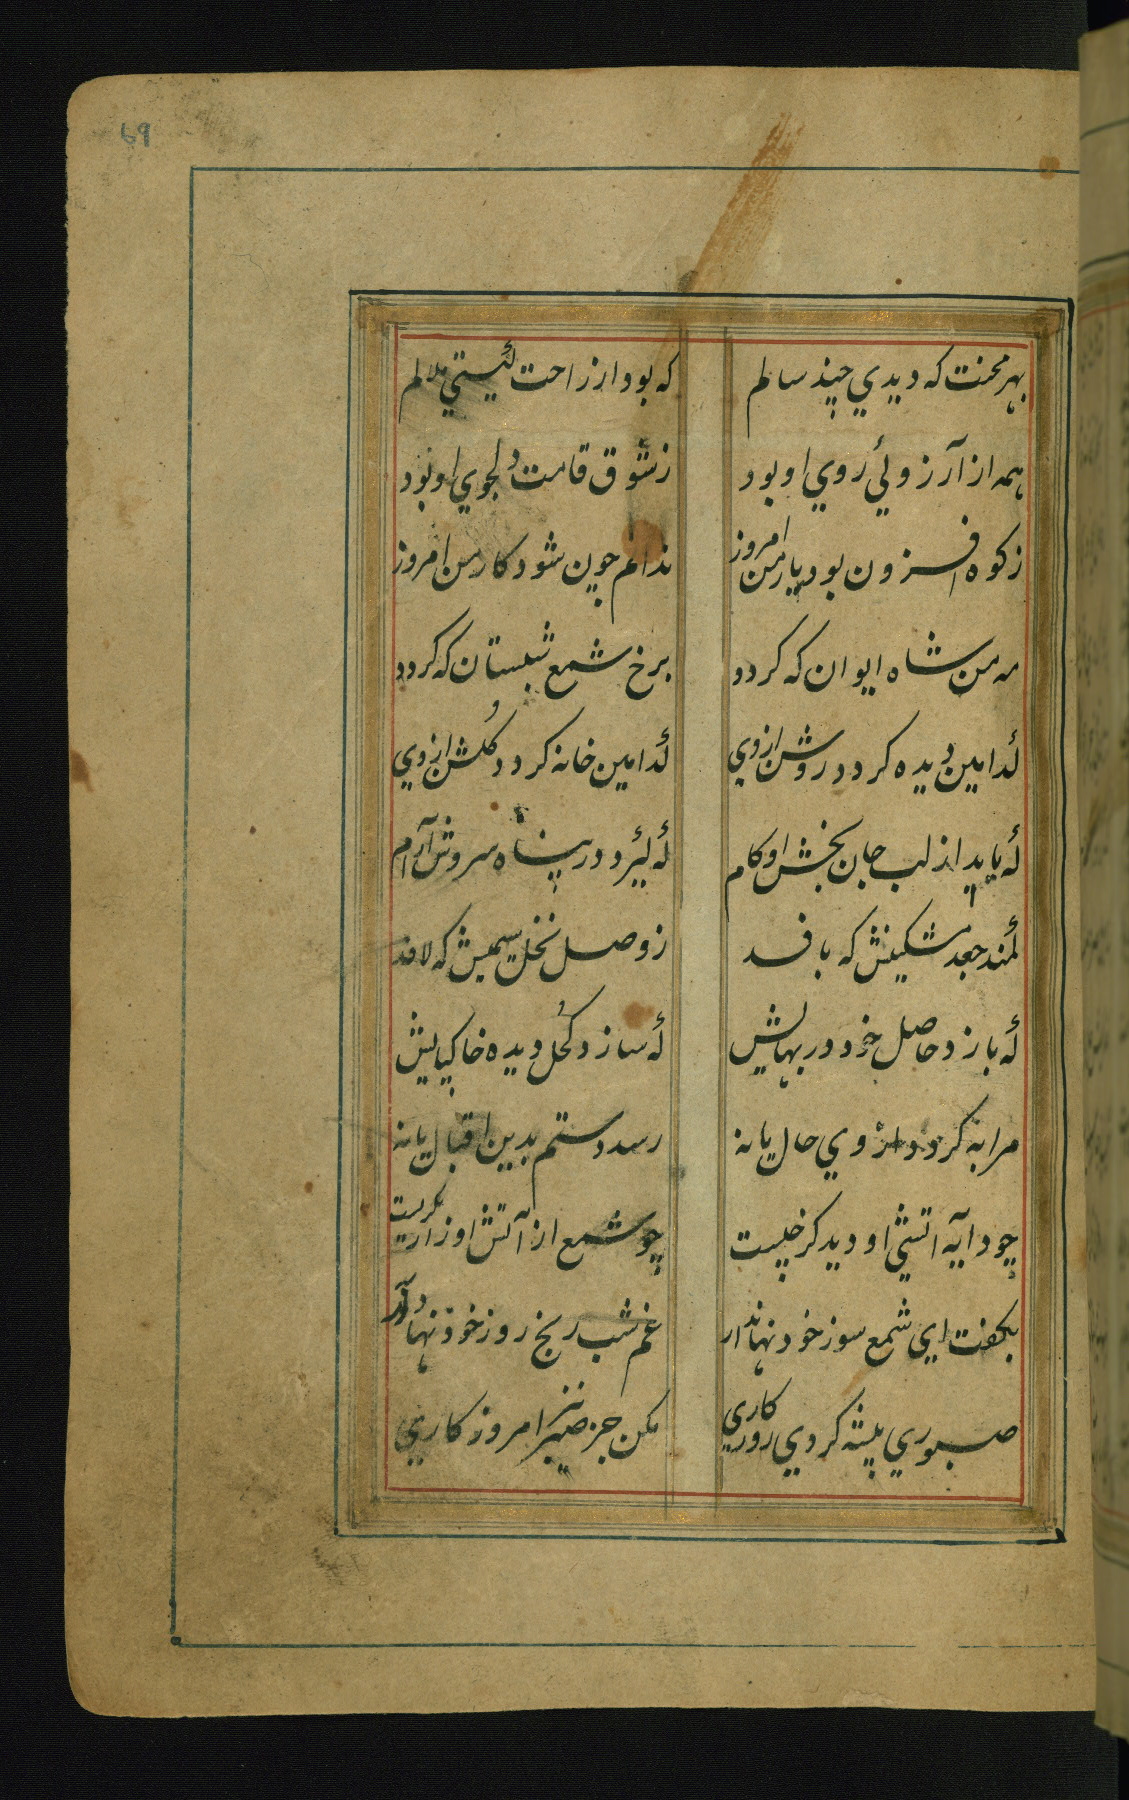 69
بهر محنت که دیدي چند سالم که بود از راحت گیتي ملالم
همه از آرزوئي روي او بود ز شوق قامت دلجوي او بود
ز کوه افزون بود بار من امروز ندانم چون شود کار من امروز
مه من شاه ایوان که کردد برخ شمع شبستان که کردد
کدامین دیده کردد روشن از وي کدامین خانه کردد گلشن از وي
که یابد از لب جان بخش او کام که گیرد در پناه سروش آرام
کمند جعد مشکینش که بافد ز وصل نخل سیمینش که لافد
که بازد حاصل خود در بهایش که سازد کحل دیده خاکپایش
مرا به کردد از وي حال یا نه رسد دستم بدین اقبال یا نه
چو دایه آتشي او دید کز چیست چو شمع از آتش او زار بکریست
بکفت اي شمع سوز خود نهاندار غم شب رنج روز خود نهاندار
صبوري پیشه کردي روزکاري مکن جز صبر نیز امروز کاري